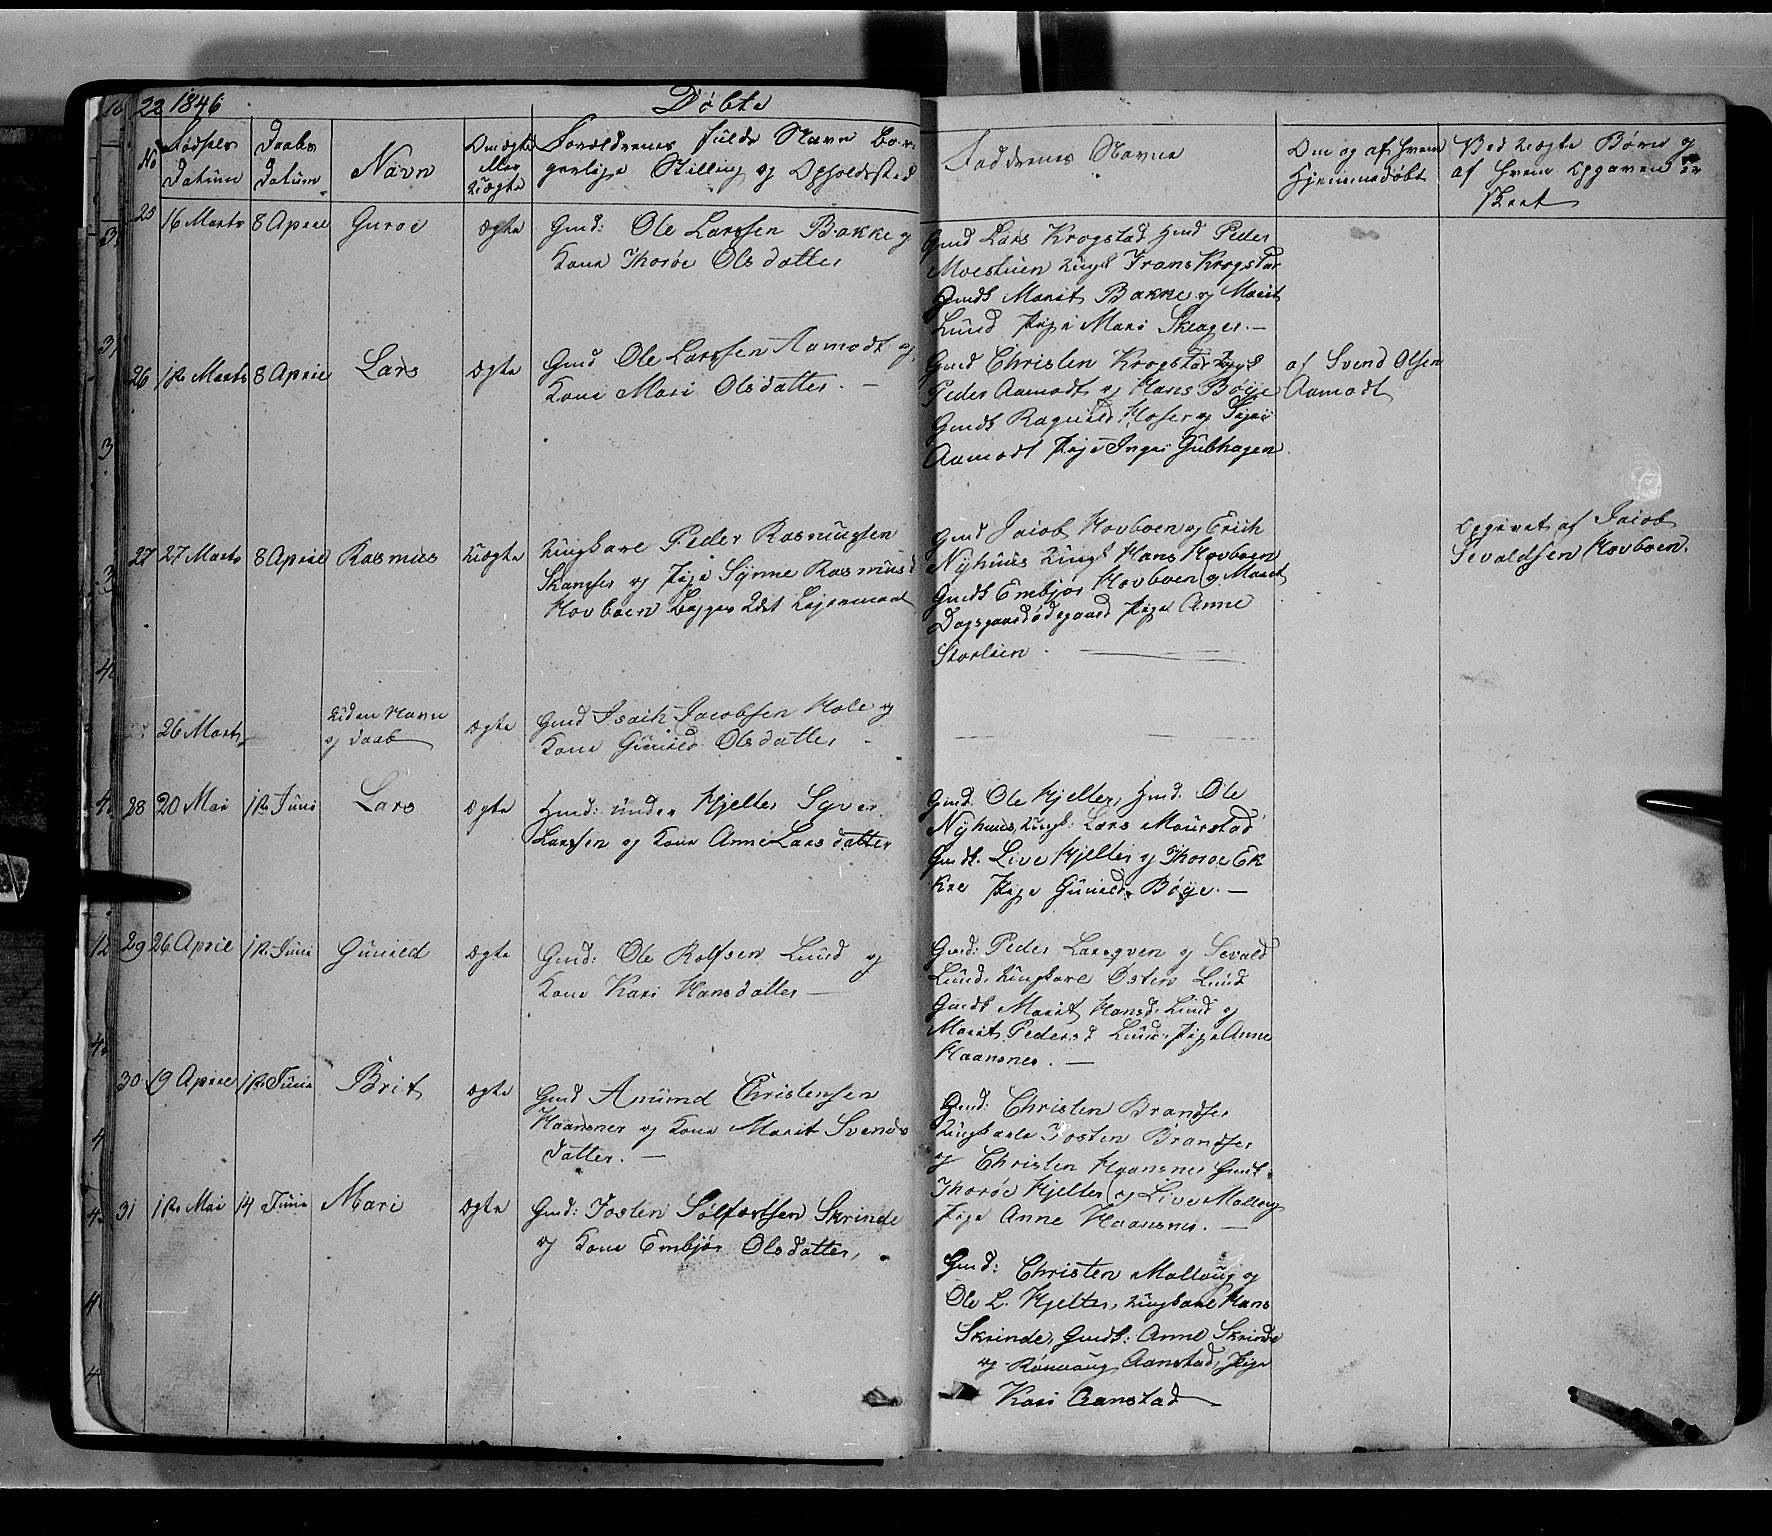 22 1846 Døbte
No
Fødsels Datum
Daabs Datum
Navn
Om ægte eller uægte
Forældrenes fulde Navn bor-
gerlige Stilling og Opholdssted
Faddrenes Navne
Om og af hvem
Hjemmedøbt
Ved uægte Børn og
af hvem Opgaven er
skeet
25 16 Marts 8 April Guroe ægte
Gmd: Ole Larssen Bakke og
Kone Thorøe Olsdatter
Gmd Lars Krogstad Hmd Peder
Moestuen Ungk Frans Krogstad
Gmdk Marit Bakke og Marit
Lund Pige Mari Skeager. —
26 1ste Marts 8 April Lars ægte
Gmd Ole Larssen Aamodt og
Kone Mari Olsdatter. —
Gmd Christen Krogstad Ungk
Peder Aamodt og Hans Bøye
Gmdk Ragnild Moser og
Aamodt Pige Inger Gubhagen
af Svend Olsen
Aamodt
27 27 Marts 8 April Rasmus uægte
Ungkarl Peder Rasmussen
Skamser og Pige Synne Rasmusd
Hovboen begges 2det Lejermaal
Gmd Jacob Hovboen og Erich
Nyhuus Ungk Hans Hovboen
Gmdk Embjør Hovboen og Marit
Dagsgaardødegaard Pige Anne
Storlien
Opgivet af Jacob
Sevaldsen Hovboen.
26 Marts
Uden Navn
og Daab
ægte
Gmd Isach Jacobsen Hole og
Kone Gunild Olsdatter —
28 20 Mai 1ste Juni Lars ægte
Hmd: under Hjelter Syver
Larssen og Kone Anne Larsdatter
Gmd. Ole Hjelter, Hmd: Ole
Nyhuus, Ungk: Lars Mourstad
Gmdk. Live Hjelter og Thoroe Ek
kre Pige Gunild Bøye. —
29 26 April 1ste Juni Gunild ægte
Gmd: Ole Rolfsen Lund og
Kone Kari Hansdatter —
Gmd: Peder Larsqven og Sevald
Lund, Ungkarl Østen Lund
Gmdk Marit Hansd. Lund og
Marit Pedersd Lund, Pige Anne
Haansnes. —
30 19 April 1ste Juni Brit ægte
Gmd Amund Christensen
Haansner og Kone Marit Svends
datter. —
Gmd: Christen Brandser
Ungkarle Josten Brandser
og Christen Haansnes Gmdk
Thorøe Hjelter og Live Malloug
Pige Anne Haansnes. —
31 1ste Mai 14 Juni Mari ægte
Gmd: Josten Sølfæstsen Skrinde
og Kone Embjør Olsdatter,
Gmd: Christen Malloug og
Ole L. Hjelter, Ungkarl Hans
Skrinde, Gmdk: Anne Skrinde
og Rønnaug Aanstad, Pige
Kari Aanstad